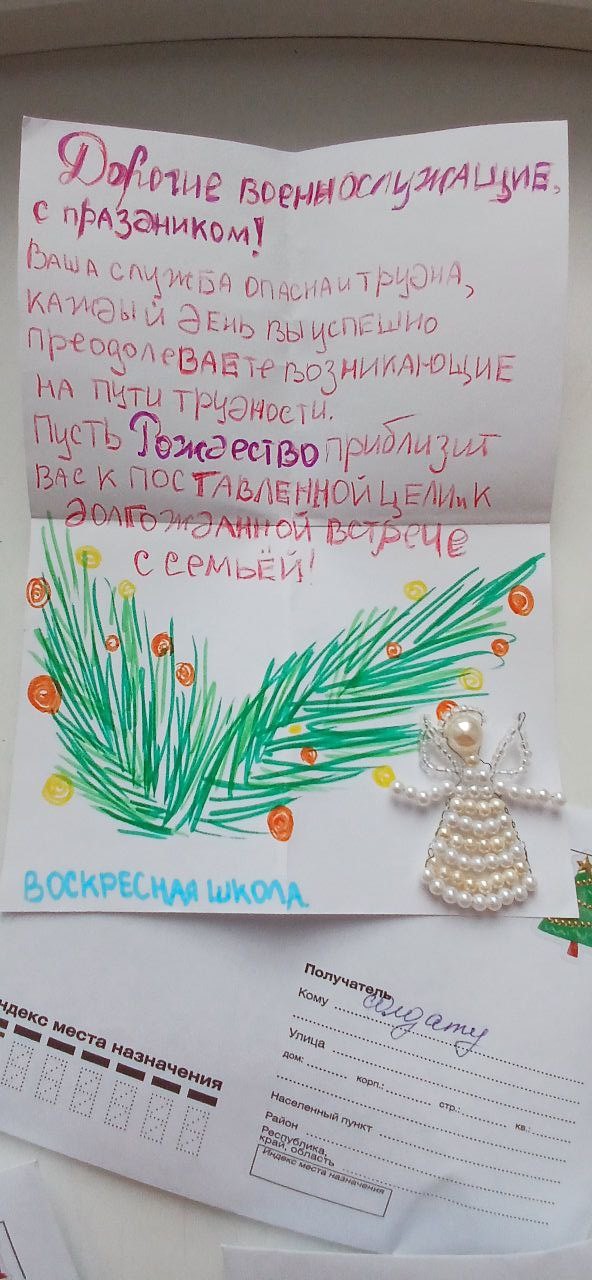 Дорогие военнослужащие,
с праздником!
Ваша служба опасна и трудна,
каждый день вы успешно
преодолеваете возникающие
на пути трудности.
Пусть Рождество приблизит
вас к поставленной цели и к
долгожданной встрече
с семьёй!
ВОСКРЕСНАЯ ШКОЛА
Получатель
Кому солдату
Улица
дом: корп.: стр.: кв.:
Населенный пункт
Район
Республика,
край, область
Индекс места назначения
ндекс места назначения